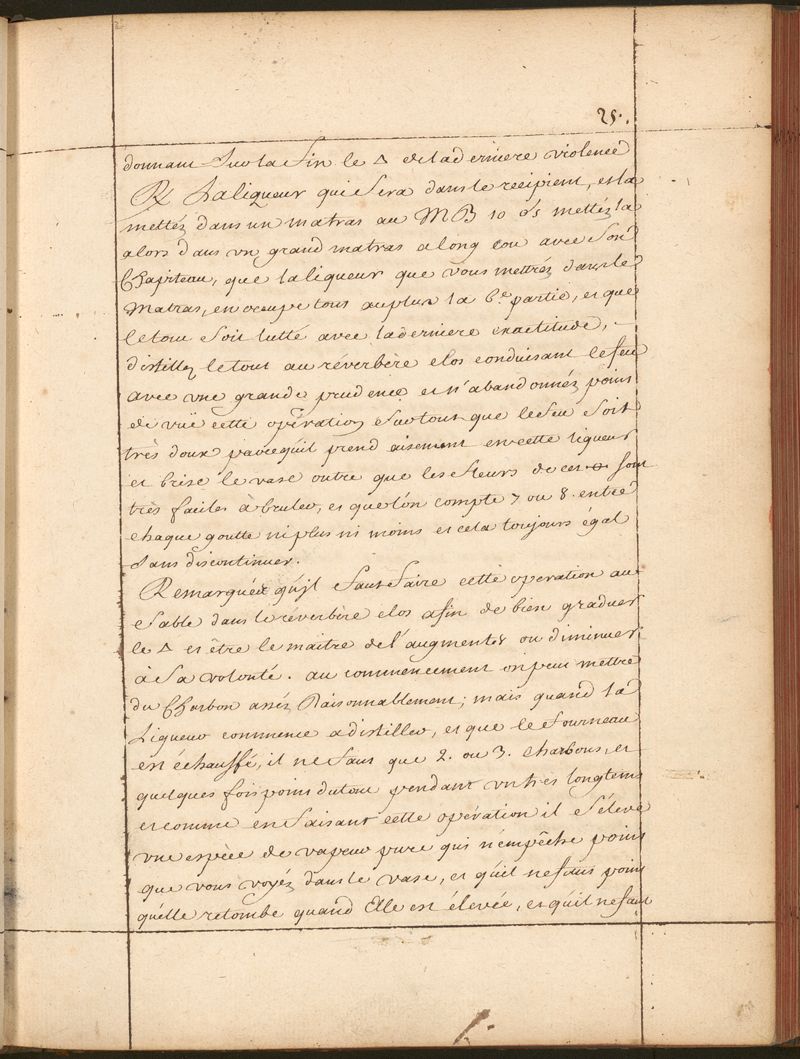 25.
donnant Sur la fin le △ de la derniere violence
℞ La liqueur qui Sera dans le recipient, et la
mettéz dans un matras au MB 10 mettéz la
alors dans un grand matras a long cou avec Son
Chapiteau, que la liqueur que vous mettréz dans le
Matras, en occupe tout au plus la 6.e partie, et que
le tout Soit lutté avec la derniere exactitude,
distilléz le tout au réverbère clos conduisant le feu
avec une grande prudence et n'abandonnéz point
de vuë cette opération Surtout que le feu Soit
très doux parcequ'il prend aisement en cette liqueur
et brise le vase outre que les fleurs de cet sont
très faciles à bruler, et que l'on compte 7 ou 8. entre
chaque goutte ni plus ni moins et cela toujours égal
Sans discontinuer.
Remarquéz qu'jl faut faire cette operation au
Sable dans le réverbère clos afin de bien graduer
le △ et être le maitre de l'augmenter ou diminuer
à Sa volonté. au commencement on peut mettre
du Charbon asséz Raisonnablement; mais quand la
Liqueur commence a distiller, et que le fourneau
est échauffé, il ne faut que 2. ou 3. charbons, et
quelques fois point du tout pendant un très longtems
et comme en faisant cette opération il S'éleve
une espèce de vapeur pure qui n'empêche point
que vous voyéz dans le vase, et qu'il ne faut point
qu'elle retombe quand Elle est élevée, et qu'il ne faut